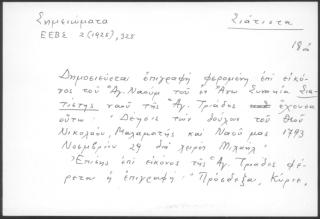 Σημειώματα Σιάτιστα
ΕΕΒΣ 2 (1925), 325
Δημοσιεύεται ἐπιγραφή φερομένη ἐπί εἰκό-
νος τοῦ Ἁγ. Ναούμ τοῦ ἐν Ἄνω Συνοικίᾳ Σια-
τίστης ναοῦ τῆς Ἁγ. Τριάδος ἔχουσα
οὕτω: Δέησις τῶν δούλων τοῦ Θεοῦ
Νικολάου, Μαλαματῆς καί Ναού μας 1793
Νοεμβρίου 29 διά χειρός Μιχαήλ.
Ἐπίσης ἐπί εἰκόνος τῆς Ἁγ. Τριάδος φέ-
ρεται ἡ ἐπιγραφή: Πρόσδεξαι, Κύριε,